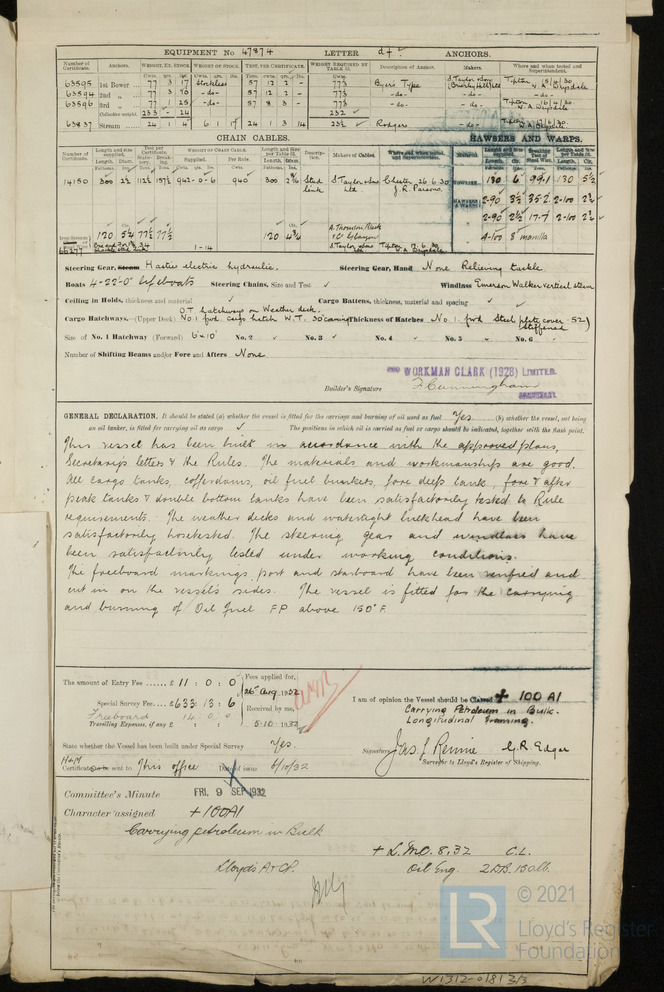 EQUIPMENT No 47874 LETTER d† ANCHORS.
Number of Certificate. Anchors. WEIGHT, EX. STOCK WEIGHT OF STOCK. TEST, PER CERTIFICATE. WEIGHT REQUIRED BY TABLE 31. Description of Anchor. Makers. Where and when tested and Superintendent.
63595 1st Bower 77 3 17 Stockless 57 12 2 - 77¾ Byers Type
63594 2nd " 77 3 10 -do- 57 12 2 - 77¾ -do- -do- -do-
63596 3rd " 77 1 25 -do- 57 8 3 - 77¾ -do- -do-
Collective weight 233 - 24 232
63837 Stream 24 1 4 6 1 17 24 1 3 14 23½ Rodgers -do-
CHAIN CABLES. HAWSERS AND WARPS.
14150 300 942-0-6 940 300 Stud link S. Taylor & Sons Ltd Chester 26.6.30 J.R. Parsons. 130 6 99.1 130 5½
2-90 3½ 35.2 2-100 2¾
2-90 2½ 17.7 2-100 2¼
120 5¼ 77½ 77½ 120 4¾ 4-100 8 manilla
66277 1-14
Steering Gear, Steam Hasties electric hydraulic. Steering Gear, Hand None Relieving tackle.
Boats 4-22'0" Lifeboats Steering Chains, Size and Test ✓ Windlass Emerson Walker vertical steam
Ceiling in Holds, thickness and material ✓ Cargo Battens, thickness, material and spacing ✓
O.T hatchways on Weather deck.
Cargo Hatchways. (Upper Deck) No 1 fwd. cargo hatch W.T. 30" coaming Thickness of Hatches No. 1 fwd Steel plate cover .52
Stiffened
Size of No. 1 Hatchway (Forward) 6'x10' No. 2 ✓ No. 3 ✓ No. 4 ✓ No. 5 ✓ No. 6 ✓
Number of Shifting Beams and/or Fore and Afters None.
WORKMAN CLARK (1928) LIMITED.
Builder's Signature F. Cunningham
SECRETARY.
GENERAL DECLARATION. It should be stated (a) whether the vessel is fitted for the carriage and burning of oil used as fuel Yes (b) whether the vessel, not being
an oil tanker, is fitted for carrying oil as cargo ✓ The positions in which oil is carried as fuel or cargo should be indicated, together with the flash point.
This vessel has been built in accordance with the approved plans,
Secretary's letters & the Rules. The materials and workmanship are good.
All cargo tanks, cofferdams, oil fuel bunkers, fore deep tank, fore & after
peak tanks & double bottom tanks have been satisfactorily tested to Rule
requirements. The weather decks and watertight bulkhead have been
satisfactorily hosetested. The steering gear and windlass have
been satisfactorily tested under working conditions.
The freeboard markings port and starboard have been verified and
cut in on the vessel's sides. The vessel is fitted for the carrying
and burning of Oil fuel F.P above 150°F.
The amount of Entry Fee ...... £ 11 : 0 : 0
Fees applied for,
26th Aug. 1932
Special Survey Fee... £633 : 13 : 6
Received by me,
Freeboard 14 0 0
Travelling Expenses, if any £
5-10-1932
I am of opinion the Vessel should be Classed + 100 A1
Carrying Petroleum in Bulk.
Longitudinal Framing.
State whether the Vessel has been built under Special Survey Yes.
Signature Jas. J. Rennie G.R. Edgar
Surveyor to Lloyd's Register of Shipping.
H+M
Certificate sent to This office Date of issue 6/10/32
Committee's Minute FRI. 9 SEP 1932
Character assigned +100A1
Carrying petroleum in Bulk
+ L.M.C. 8,32 C.L.
Lloyd's A & CP. Oil Eng. 2DB. 150lb.
LR © 2021
Lloyd's Register
Foundation
W1312-0181 3/3